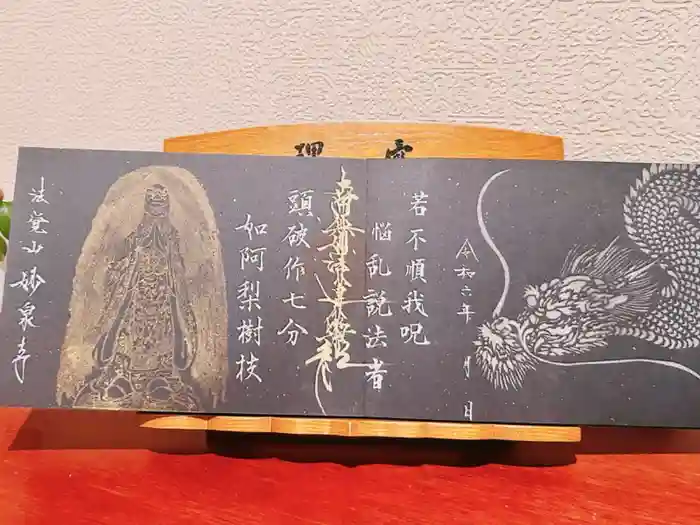 令和六年 月 日
若不順我呪
悩乱説法者
南無妙法蓮華経
頭破作七分
如阿梨樹枝
法覚山 妙泉寺